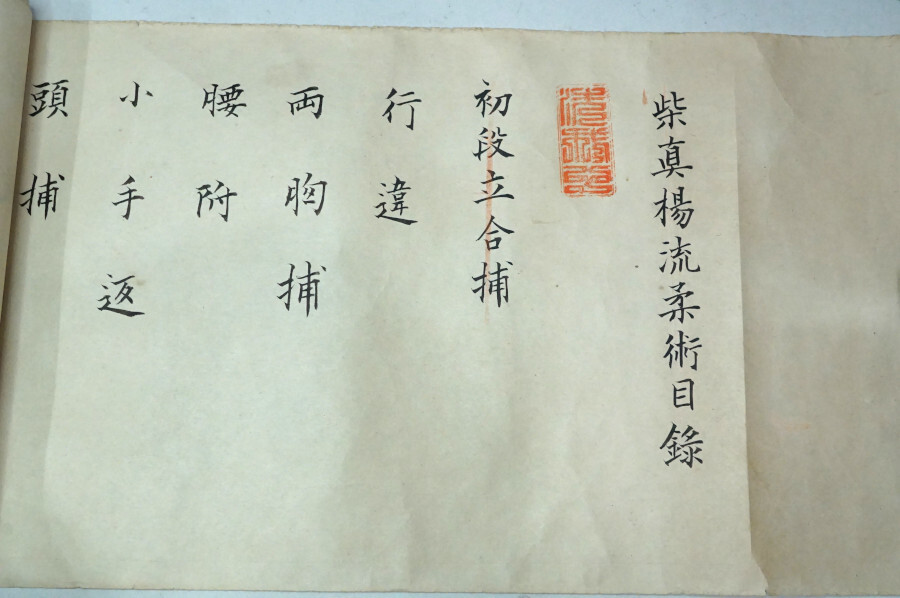 柴眞楊流柔術目錄
初段立合捕
行違
両胸捕
腰附
小手返
頭捕